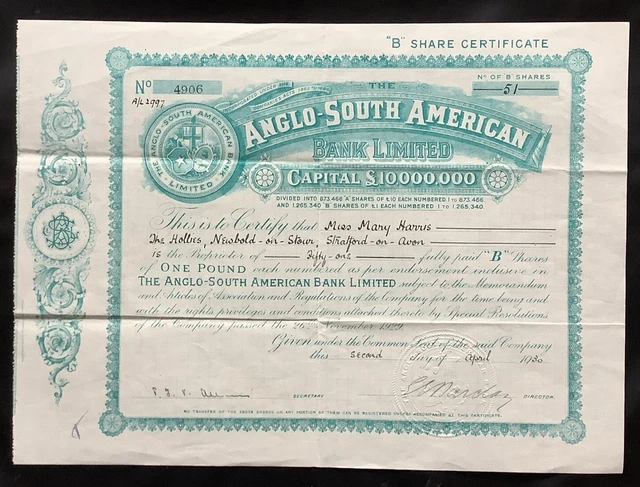 "B" SHARE CERTIFICATE
Nº 4906
A/L 2997
Nº OF B SHARES
51
THE
ANGLO-SOUTH AMERICAN
BANK LIMITED
THE ANGLO-SOUTH AMERICAN BANK LIMITED
CAPITAL £10,000,000
DIVIDED INTO 873,466 "A" SHARES OF £10 EACH NUMBERED 1 TO 873,466
AND 1,265,340 "B" SHARES OF £1 EACH NUMBERED 1 TO 1,265,340.
This is to Certify that Miss Mary Harris
The Hollies, Newbold-on-Stour, Stratford-on-Avon
is the Proprietor of Fifty-one fully paid "B" Shares
of ONE POUND each numbered as per endorsement inclusive in
THE ANGLO-SOUTH AMERICAN BANK LIMITED subject to the Memorandum
and Articles of Association and Regulations of the Company for the time being and
with the rights privileges and conditions attached thereto by Special Resolutions
of the Company passed the 26th November 1929.
Given under the Common Seal of the said Company
this second day of April 1930
SECRETARY
DIRECTOR
NO TRANSFER OF THE ABOVE SHARES OR ANY PORTION OF THEM CAN BE REGISTERED UNLESS ACCOMPANIED BY THIS CERTIFICATE.